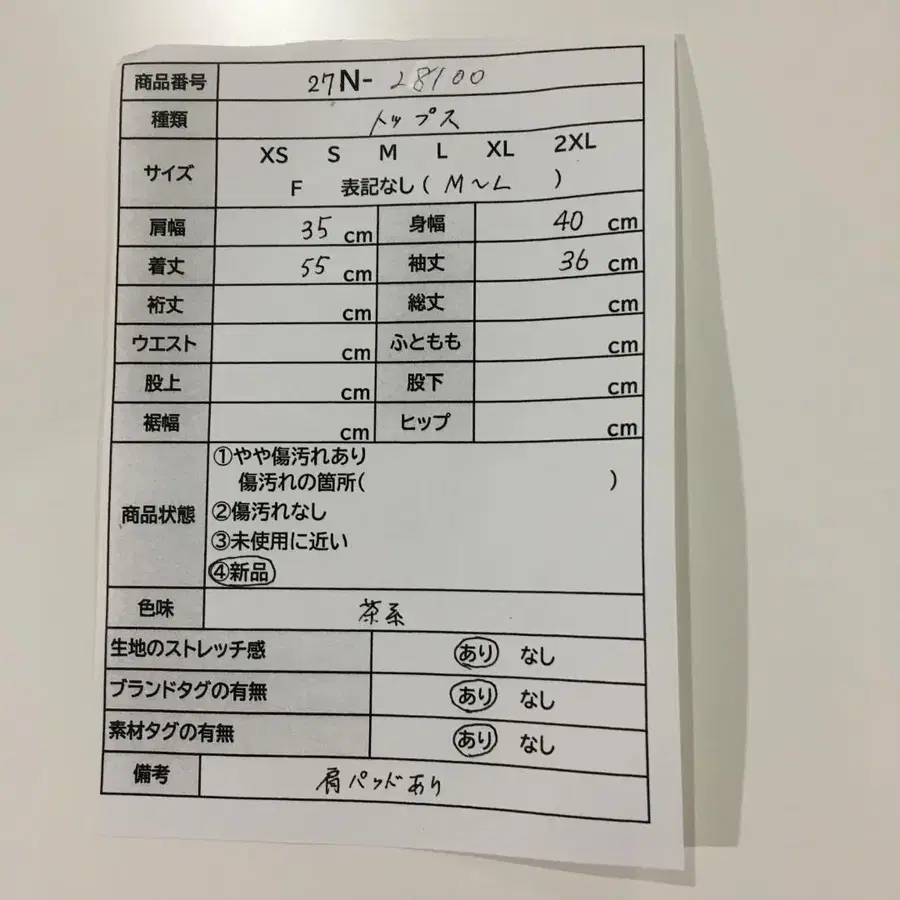 商品番号 27N-28100
種類 トップス
サイズ XS S M L XL 2XL
F 表記なし( M〜L )
肩幅 35 cm 身幅 40 cm
着丈 55 cm 袖丈 36 cm
裄丈 cm 総丈 cm
ウエスト cm ふともも cm
股上 cm 股下 cm
裾幅 cm ヒップ cm
商品状態 ①やや傷汚れあり
傷汚れの箇所( )
②傷汚れなし
③未使用に近い
④新品
色味 茶系
生地のストレッチ感 あり なし
ブランドタグの有無 あり なし
素材タグの有無 あり なし
備考 肩パッドあり